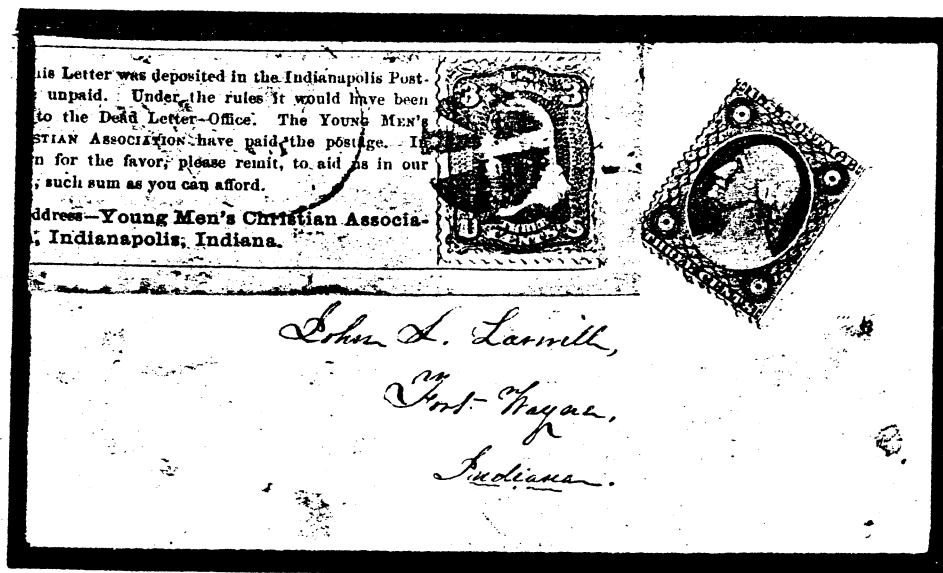 his Letter was deposited in the Indianapolis Post-
unpaid. Under the rules it would have been
to the Dead Letter-Office. The YOUNG MEN'S
STIAN ASSOCIATION have paid the postage. If
n for the favor, please remit, to aid us in our
, such sum as you can afford.
ddress—Young Men's Christian Associa-
, Indianapolis, Indiana.
3 3
U THREE S
CENTS
John S. Larwill,
Fort Wayne,
Indiana.